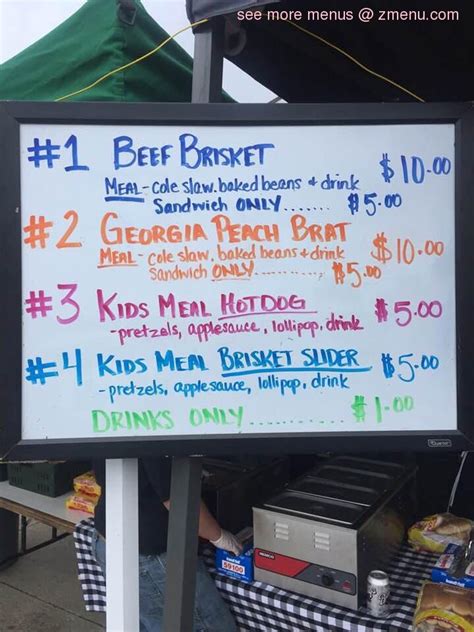 see more menus @ zmenu.com
#1 BEEF BRISKET $10.00
MEAL - cole slaw, baked beans + drink
Sandwich ONLY....... $5.00
#2 GEORGIA PEACH BRAT $10.00
MEAL - cole slaw, baked beans + drink
Sandwich ONLY........... $5.00
#3 KIDS MEAL HOTDOG $5.00
-pretzels, applesauce, lollipop, drink
#4 KIDS MEAL BRISKET SLIDER $5.00
-pretzels, applesauce, lollipop, drink
DRINKS ONLY............. $1.00
59100
NEMCO